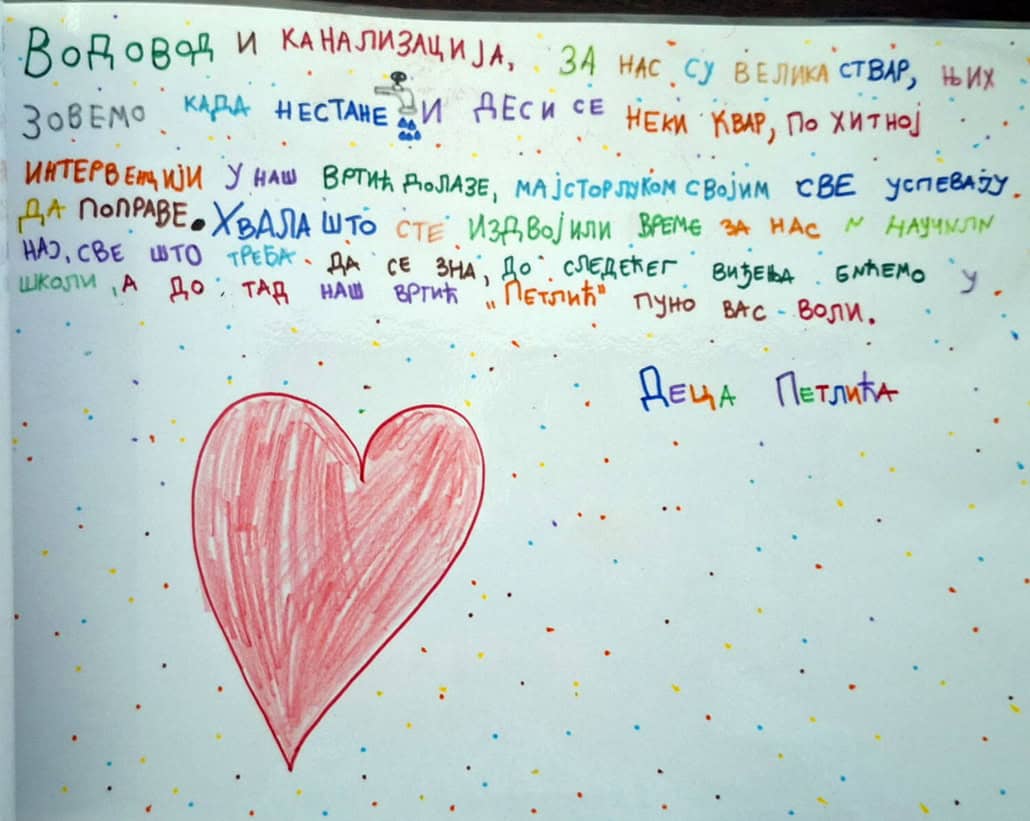 Водовод и канализација, за нас су велика ствар, њих
зовемо када нестане и деси се неки квар, по хитној
интервенцији у наш вртић долазе, мајсторлуком својим све успевају
да поправе. Хвала што сте издвојили време за нас и научили
нас, све што треба. Да се зна, до следећег виђења бићемо у
школи, а до тад наш вртић „Петлић" пуно вас воли.
Деца Петлића